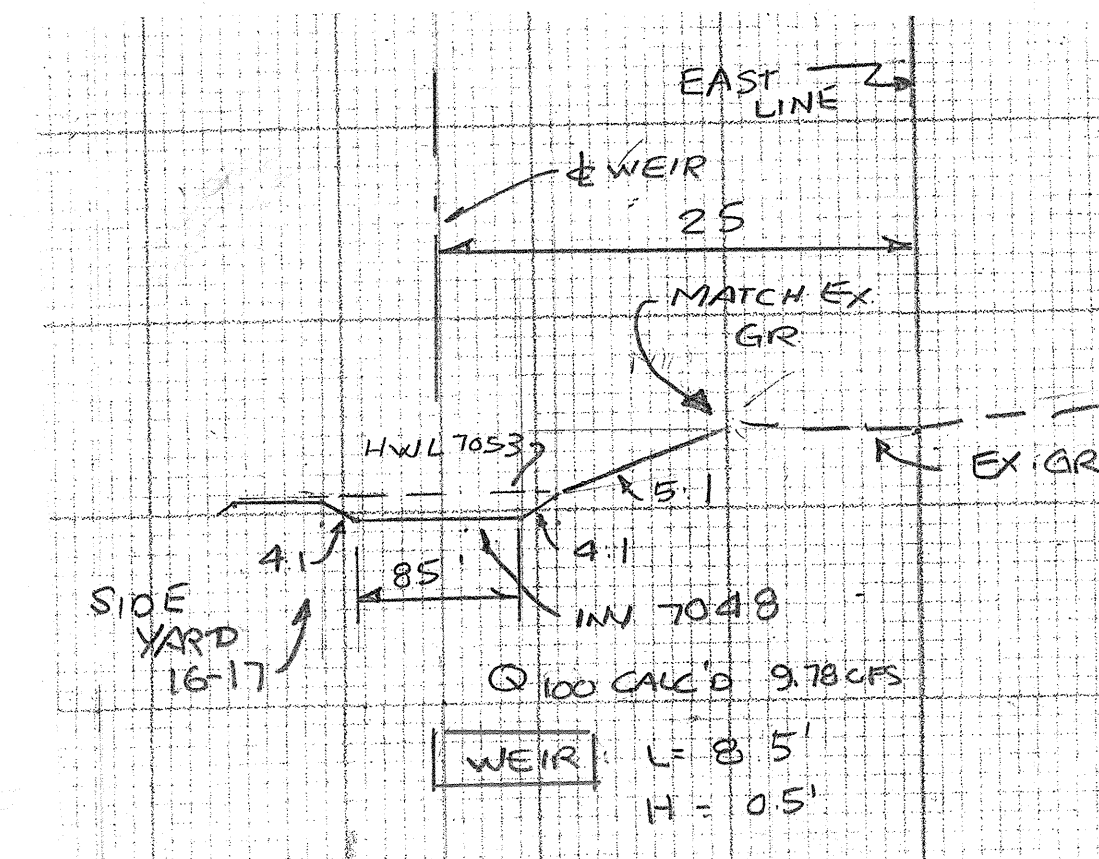 EAST
LINE
℄ WEIR
25
MATCH EX
GR
HWL 7053
5:1
EX. GR
4:1
4:1
85'
SIDE
YARD
16-17
INV 7048
Q100 CALC'D 9.78 CFS
WEIR : L= 8 5'
H = 0.5'